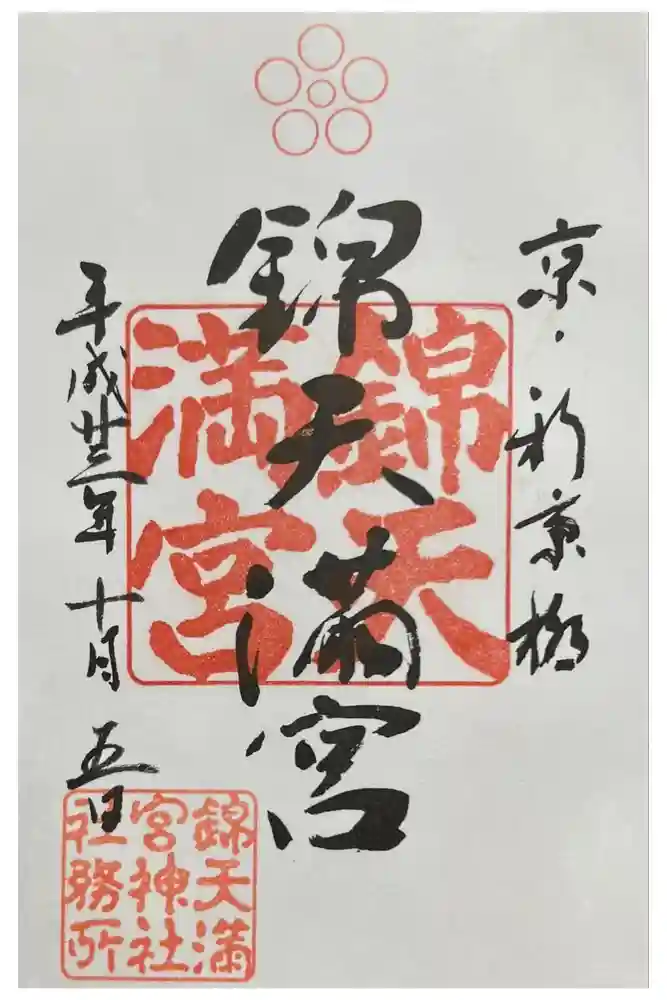 京・新京極
錦天満宮
錦天
満宮
平成廿三年 十月 五日
錦天満
宮神社
社務所